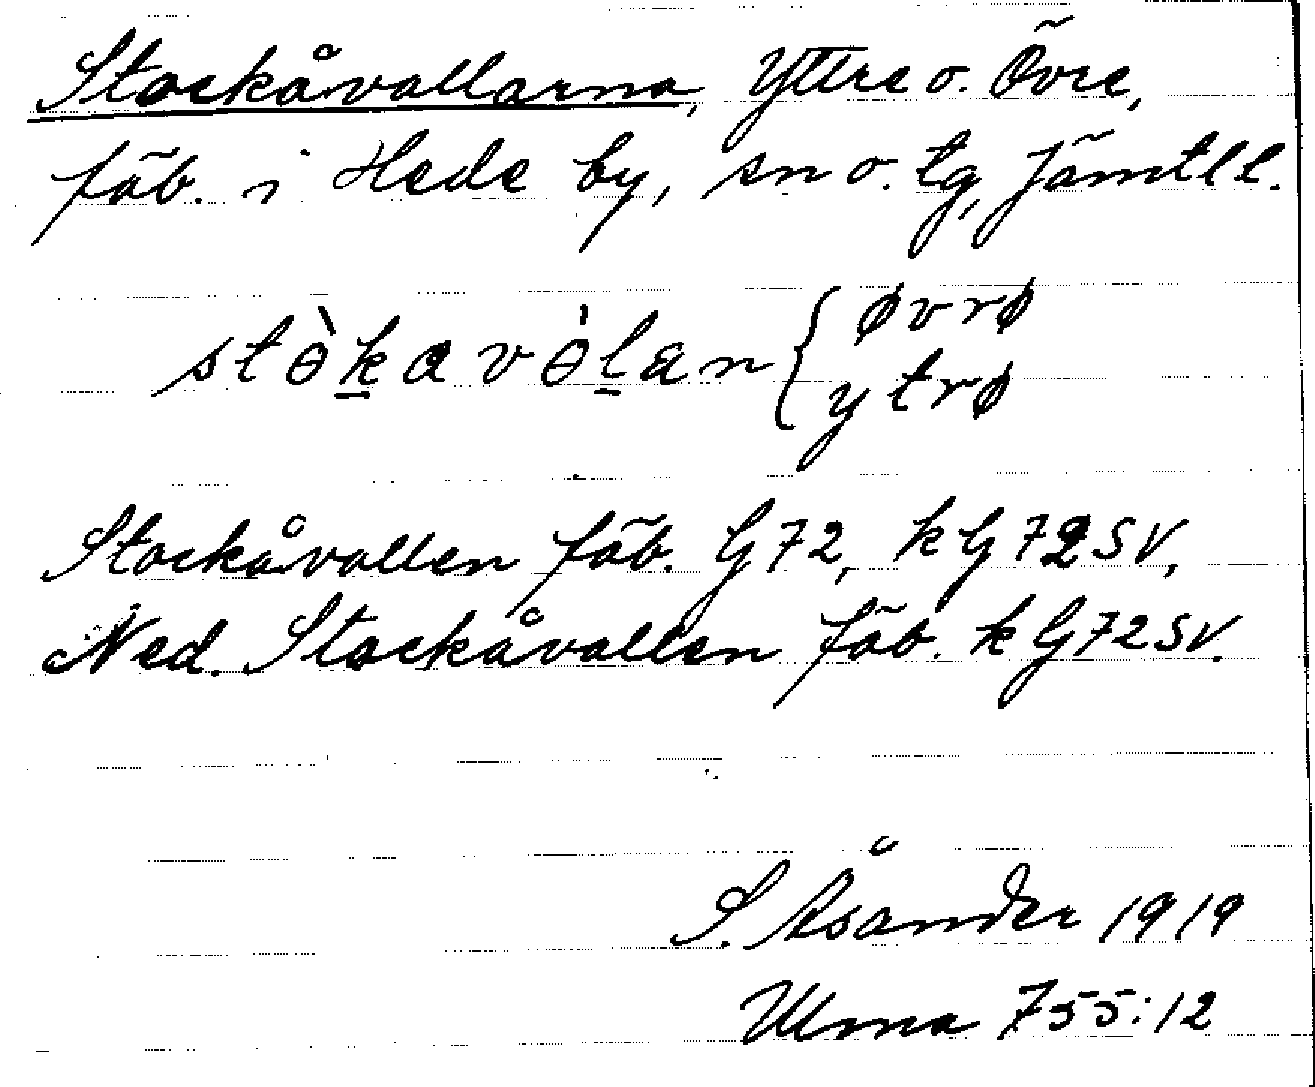 Stockåvallarna, Yttre o. Övre,
fäb. i Hede by, sn o. tg, Jämtl l.
stɵ̀kavɵ̀lan { øvrø
ytrø
Stockåvallen fäb. G72, kG72SV,
Ned. Stockåvallen fäb. kG72SV.
S. Åsander 1919
Ulma 755:12